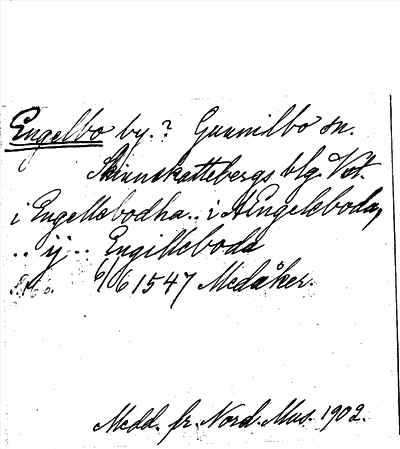 Engelbo by.? Gunnilbo sn.
Skinnskattebergs blg. Vst.
i Engellsbodha.. i Hengelsboda,
.. ij .. Engillsboda
6/6 1547 Medåker.
Medd. fr. Nord. Mus. 1902.